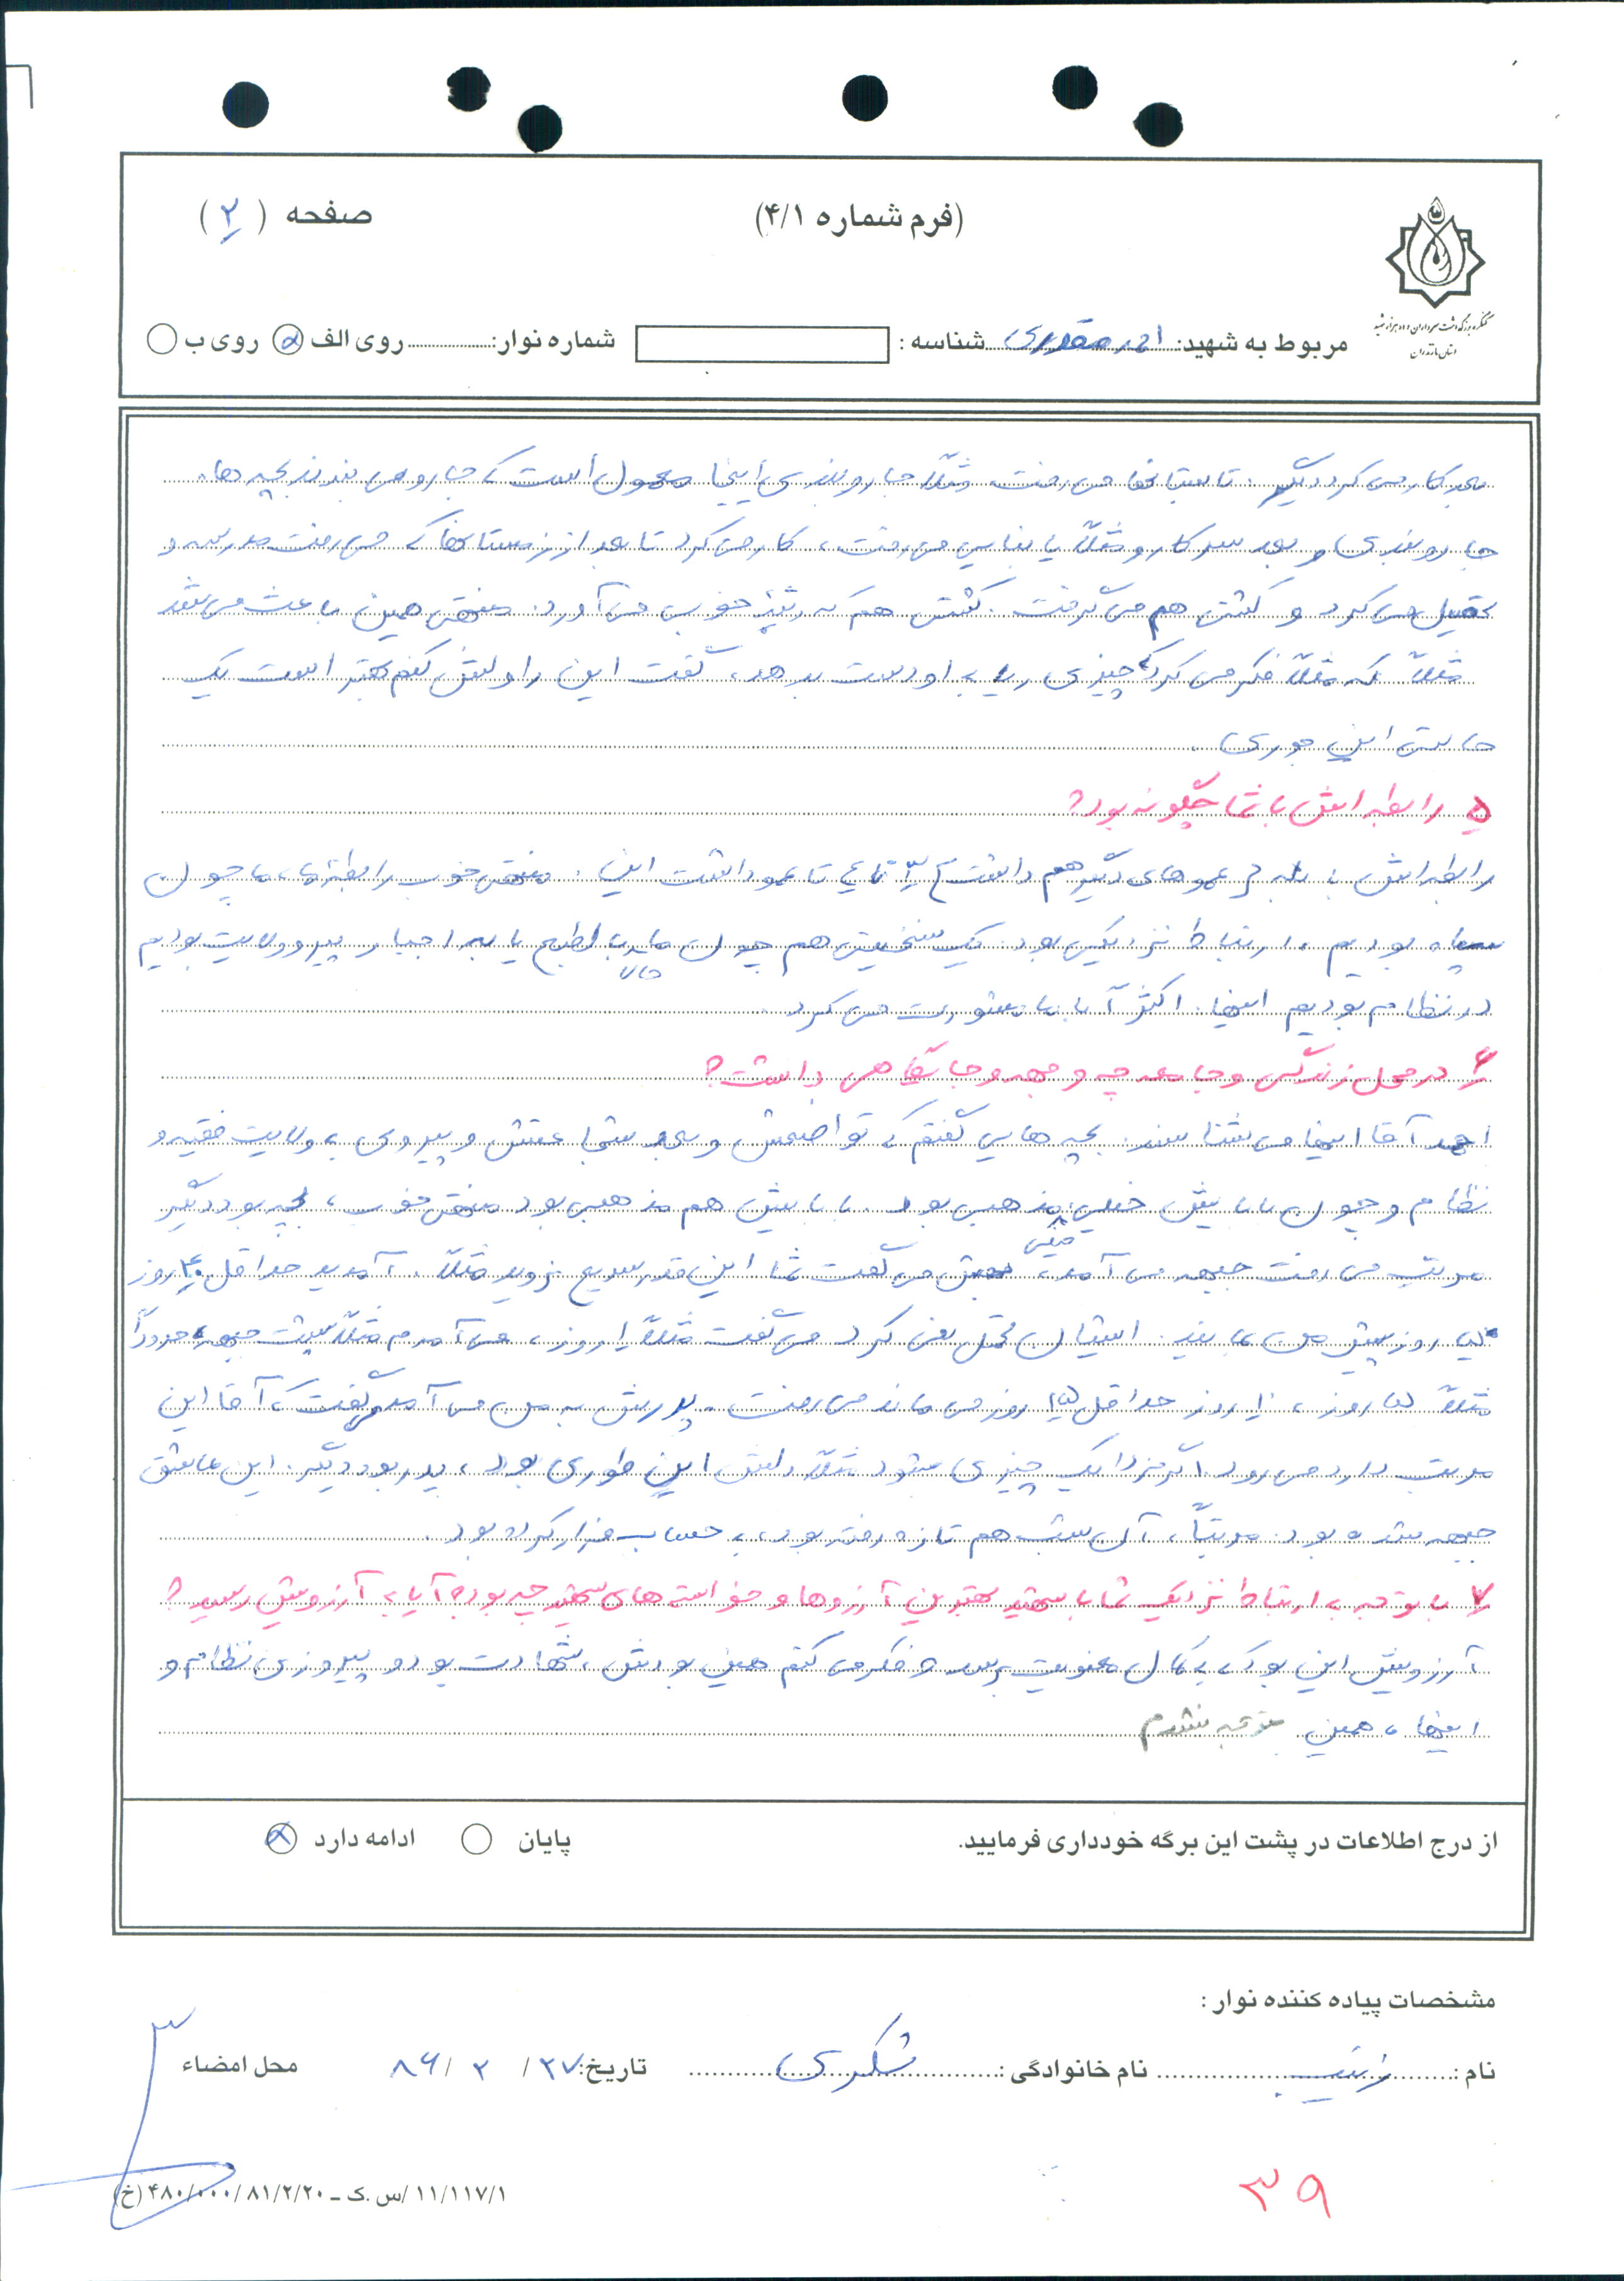 (فرم شماره ۴/۱)
صفحه (۲)
کنگره بزرگداشت سرداران و ده هزار شهید
استان مازندران
مربوط به شهید: احمد مقدری شناسه : شماره نوار: روی الف روی ب
بعد کار می کرد دیگر. تابستانها می رفت مثلاً جاروبندی اینجا معمول است که جارو می بندند بچه ها.
جاروبندی و بعد سر کار و مثلاً یا بنایی می رفت، کار می کرد تا بعد از زمستانها که می رفت مدرسه و
تحصیل می کرد و کشتی هم می گرفت. کشتی هم که رتبه خوب می آورد. منتهی همین باعث می شد
مثلاً که مثلاً فکر می کرد که چیزی ریا به او دست بدهد، گفت این را ولش کنم بهتر است یک
حالت این جوری.
۵ رابطه اش با شما چگونه بود؟
رابطه اش با بله عموهای دیگر هم داشت ۳ تا ۴ تا عمو داشت این. منتهی خوب رابطه ما، ما چون
سپاه بودیم، ارتباط نزدیکی بود. یک سنخیتی هم چون ما حالا بالطبع یا به اجبار پیرو ولایت بودیم
در نظام بودیم اینها. اکثراً با ما مشورت می کرد.
۶ در محل زندگی و جامعه چه وجهه و جایگاهی داشت؟
احمد آقا اینها می شناسند. بچه هایی گفتم که تواضعش و بعد شجاعتش و پیروی به ولایت فقیه و
نظام و چون بابایش خیلی مذهبی بود. بابایش هم مذهبی بود منتهی خوب، بچه بود دیگر
مرتب می رفت جبهه می آمد، خیلی می گفت شما این قدر سریع نروید مثلاً. آمدید حداقل ۴۰ روز
روز پیش من بمانید. ایشان تحمل نمی کرد می گفت مثلاً ۱۰ روز، می آمدم مثلاً پشت جبهه حدوداً
مثلاً روز، ۱۰ روز حداقل ۱۵ روز می ماند می رفت. پدرش به من می آمد می گفت که آقا این
مرتب دارد می رود اگر فردا یک چیزی بشود مثلاً دلش این طوری بود، پدر بود دیگر. این عاشق
جبهه شده بود. مرتباً، آن شب هم تازه رفته بود، به حساب فرار کرده بود.
۷ با توجه به ارتباط نزدیک شما با شهید بهترین آرزوها و خواسته های شهید چه بود؟ آیا به آرزویش رسید؟
آرزویش این بود که به کمال معنویت برسد و فکر می کنم همین بودش، شهادت بود و پیروزی نظام و
اینها، همین. متوجه نشدم
از درج اطلاعات در پشت این برگه خودداری فرمایید.
پایان ادامه دارد
مشخصات پیاده کننده نوار :
نام : زینب نام خانوادگی : شکری تاریخ: ۲۷/ ۲ /۸۶ محل امضاء
۱۱/۱۱۷/۱ /س .ک – ۴۸۰/۰۰۰/۸۱/۲/۲۰ (خ)
۳۹